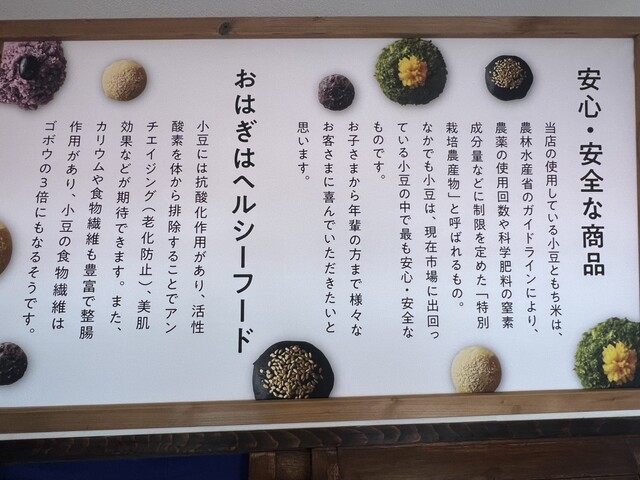 安心・安全な商品
当店の使用している小豆ともち米は、
農林水産省のガイドラインにより、
農薬の使用回数や科学肥料の窒素
成分量などに制限を定めた「特別
栽培農産物」と呼ばれるもの。
なかでも小豆は、現在市場に出回っ
ている小豆の中で最も安心・安全な
ものです。
お子さまから年輩の方まで様々な
お客さまに喜んでいただきたいと
思います。
おはぎはヘルシーフード
小豆には抗酸化作用があり、活性
酸素を体から排除することでアン
チエイジング(老化防止)、美肌
効果などが期待できます。また、
カリウムや食物繊維も豊富で整腸
作用があり、小豆の食物繊維は
ゴボウの3倍にもなるそうです。